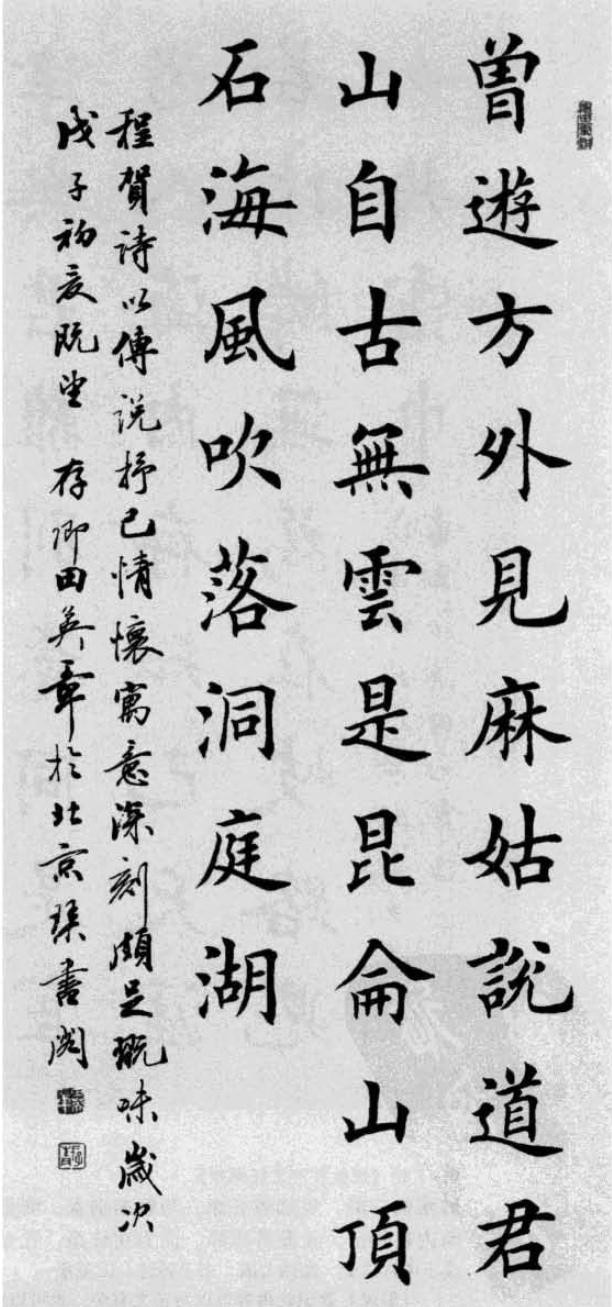 曾遊方外見麻姑說道君
山自古無雲是昆侖山頂
石海風吹落洞庭湖
程賀詩以傳說抒己情懷寓意深刻頗足玩味歲次
戊子初夏既望 存卿田英章於北京琹書閣